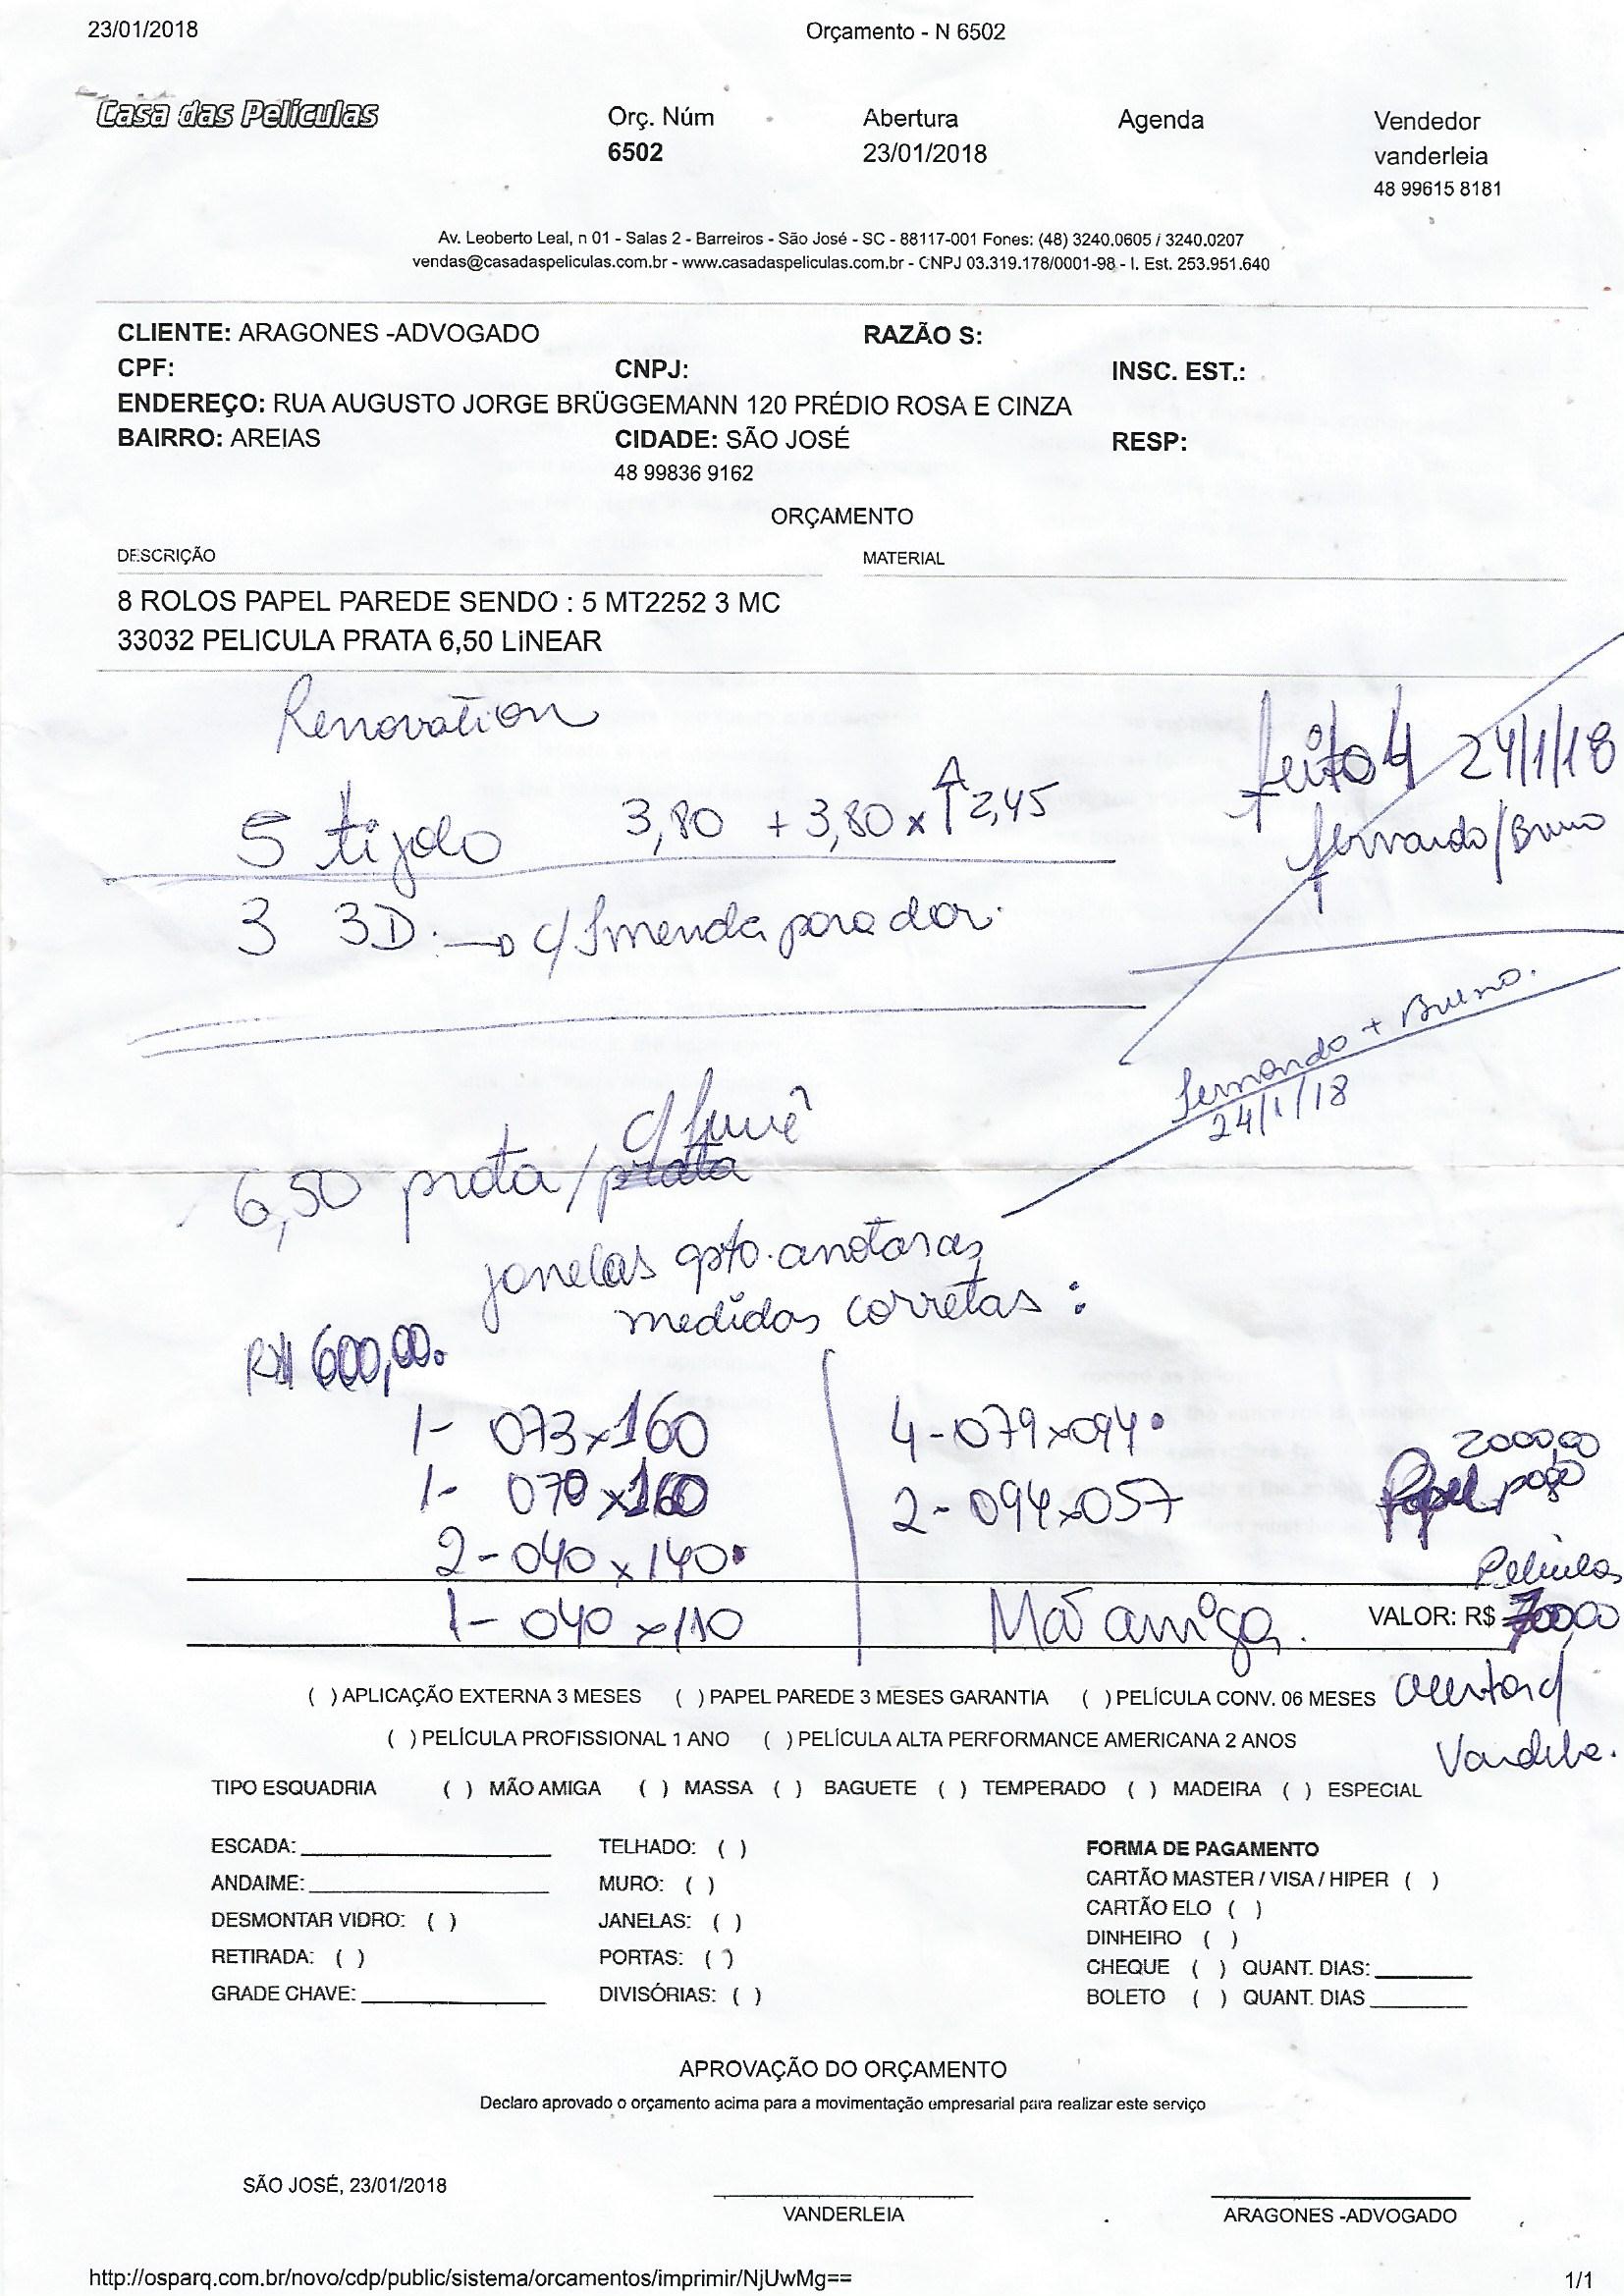 23/01/2018 Orçamento - N 6502
Casa das Películas
Orç. Núm Abertura Agenda Vendedor
6502 23/01/2018 vanderleia
48 99615 8181
Av. Leoberto Leal, n 01 - Salas 2 - Barreiros - São José - SC - 88117-001 Fones: (48) 3240.0605 / 3240.0207
vendas@casadaspeliculas.com.br - www.casadaspeliculas.com.br - CNPJ 03.319.178/0001-98 - I. Est. 253.951.640
CLIENTE: ARAGONES -ADVOGADO RAZÃO S:
CPF: CNPJ: INSC. EST.:
ENDEREÇO: RUA AUGUSTO JORGE BRÜGGEMANN 120 PRÉDIO ROSA E CINZA
BAIRRO: AREIAS CIDADE: SÃO JOSÉ RESP:
48 99836 9162
ORÇAMENTO
DESCRIÇÃO MATERIAL
8 ROLOS PAPEL PAREDE SENDO : 5 MT2252 3 MC
33032 PELICULA PRATA 6,50 LiNEAR
Renovation
feito 24/1/18
5 tijolo 3,80 + 3,80 x 2,45
fernando/Bruno
3 3D. c/
Fernando + Bruno.
24/1/18
6,50 prata/prata
janelas apto. anotaras
medidas corretas :
R$ 600,00.
1- 073x160 4-079x094
1- 070x160 2-094x057
2000,00
Papel pago
2-040x140
Peliculas
1-040x110 Mão amiga. VALOR: R$
( ) APLICAÇÃO EXTERNA 3 MESES ( ) PAPEL PAREDE 3 MESES GARANTIA ( ) PELÍCULA CONV. 06 MESES
( ) PELÍCULA PROFISSIONAL 1 ANO ( ) PELÍCULA ALTA PERFORMANCE AMERICANA 2 ANOS
TIPO ESQUADRIA ( ) MÃO AMIGA ( ) MASSA ( ) BAGUETE ( ) TEMPERADO ( ) MADEIRA ( ) ESPECIAL
ESCADA: TELHADO: ( ) FORMA DE PAGAMENTO
ANDAIME: MURO: ( ) CARTÃO MASTER / VISA / HIPER ( )
DESMONTAR VIDRO: ( ) JANELAS: ( ) CARTÃO ELO ( )
RETIRADA: ( ) PORTAS: ( ) DINHEIRO ( )
GRADE CHAVE: DIVISÓRIAS: ( ) CHEQUE ( ) QUANT. DIAS:
BOLETO ( ) QUANT. DIAS
APROVAÇÃO DO ORÇAMENTO
Declaro aprovado o orçamento acima para a movimentação empresarial para realizar este serviço
SÃO JOSÉ, 23/01/2018
VANDERLEIA ARAGONES -ADVOGADO
http://osparq.com.br/novo/cdp/public/sistema/orcamentos/imprimir/NjUwMg== 1/1